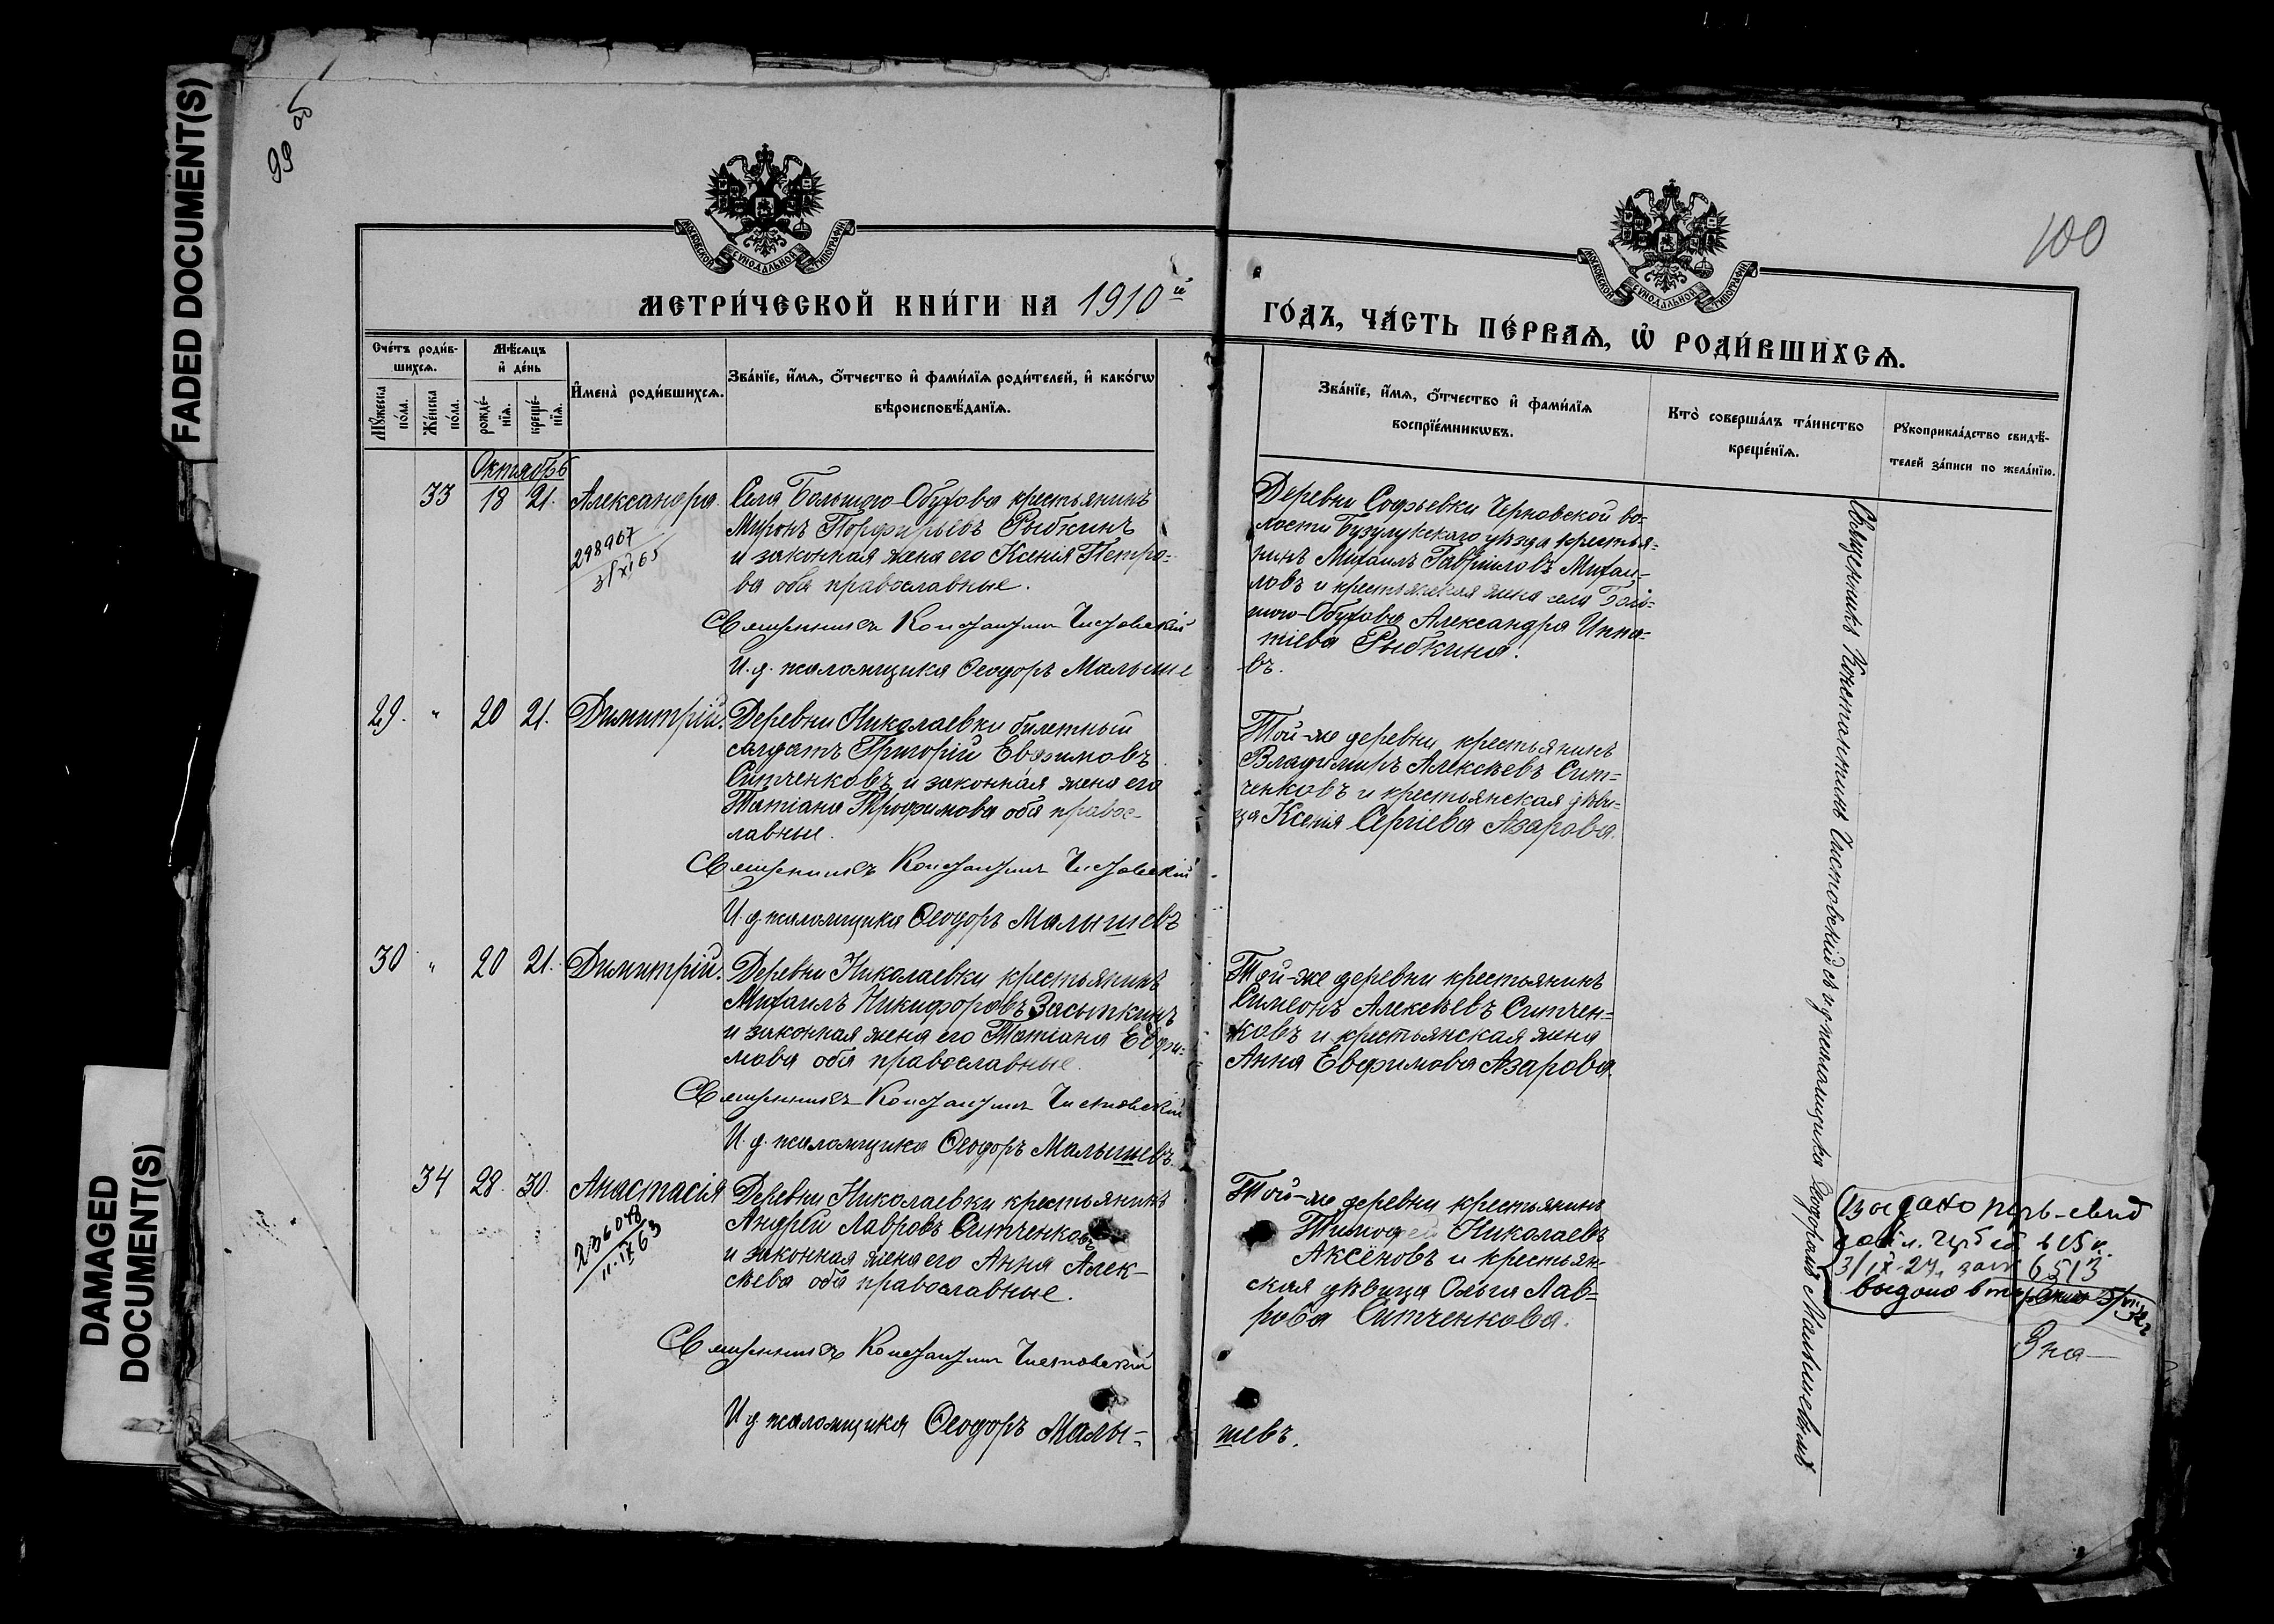 FADED DOCUMENT(S)
DAMAGED
DOCUMENT(S)
99 об
100
МОСКОВСКОЙ СѴНОДАЛЬНОЙ ТИПОГРАФІИ
МОСКОВСКОЙ СѴНОДАЛЬНОЙ ТИПОГРАФІИ
МЕТРИ́ЧЕСКОЙ КНИ́ГИ НА 1910й
ГО́ДЪ, ЧА́СТЬ ПЕ́РВАѦ, Ѡ҆ РОДИ́ВШИХСѦ.
Сче́тъ роди́в-
шихсѧ.
Мꙋ́жеска
по́ла.
Же́нска
по́ла.
Мѣ́сѧцъ
и҆ де́нь
рожде́-
нїѧ.
креще́-
нїѧ.
И҆мена̀ роди́вшихсѧ.
Зва́нїе, и҆́мѧ, ѻ҆́тчество и҆ фами́лїѧ роди́телей, и҆ како́гѡ
вѣроисповѣ́данїѧ.
Зва́нїе, и҆́мѧ, ѻ҆́тчество и҆ фами́лїѧ
воспрїе́мникѡвъ.
Кто̀ соверша́лъ та́инство
креще́нїѧ.
Рꙋкоприкла́дство свидѣ́-
телей за́писи по жела́нїю.
Октябрь
33 18 21. Александра.
298967
3/XI 65
Села Большого-Обухова крестьянинъ
Миронъ Порфирьевъ Рыбкинъ
и законная жена его Ксенія Петро-
ва оба православные.
Священникъ Константинъ Чистовскій
И. д. псаломщика Ѳеодоръ Малыше
въ.
Деревни Софьевки Черновской во-
лости Бузулукскаго уѣзда крестья-
нинъ Михаилъ Гавріиловъ Михаи-
ловъ и крестьянская жена села Боль-
шого-Обухова Александра Игна-
тіева Рыбкина.
29. " 20 21. Димитрій.
Деревни Николаевки билетный
солдатъ Григорій Евфимовъ
Ситченковъ и законная жена его
Татіана Трофимова оба правос-
лавные.
Священникъ Константинъ Чистовскій
И. д. псаломщика Ѳеодоръ Малышевъ
Той-же деревни крестьянинъ
Владимиръ Алексѣевъ Сит-
ченковъ и крестьянская дѣви-
ца Ксенія Сергіева Азарова.
30 " 20 21. Димитрій.
Деревни Николаевки крестьянинъ
Михаилъ Никифоровъ Засыпкинъ
и законная жена его Татіана Евфи-
мова оба православные.
Священникъ Константинъ Чистовскій
И. д. псаломщика Ѳеодоръ Малышевъ.
Той-же деревни крестьянинъ
Симеонъ Алексѣевъ Ситчен-
ковъ и крестьянская жена
Анна Евфимова Азарова.
34 28. 30. Анастасія
236048
11.IX 63
Деревни Николаевки крестьянинъ
Андрей Лавровъ Ситченковъ
и законная жена его Анна Алек-
сѣева оба православные.
Священникъ Константинъ Чистовскій
И д псаломщика Ѳеодоръ Малы-
шевъ.
Той-же деревни крестьянинъ
Тимофей Николаевъ
Аксёновъ и крестьян-
ская дѣвица Ольга Лав-
рова Ситченкова.
Священникъ Константинъ Чистовскій съ и. д. псаломщика Ѳеодоромъ Малышевымъ
Выдано
3/IX-27. 6513
выдано